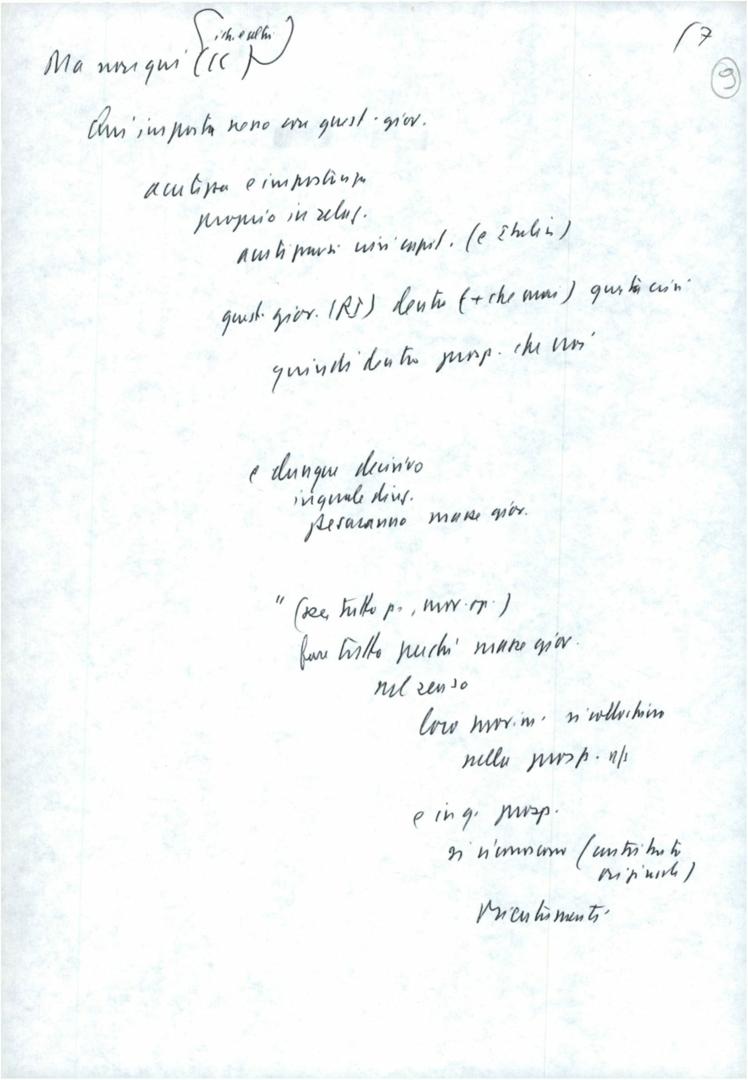 17
9
Ma non qui (CC)
Qui importa nesso con quest. giov.
acutizza e importanza
proprio in relaz.
acutizzarsi crisi capit. (e Italia)
quest. giov. (RJ) dentro (+ che mai) questa crisi
quindi dentro prosp. che noi
e dunque decisivo
in quale direz.
peseranno masse giov.
" (per tutto p., mov. op.)
fare tutto perché masse giov.
nel senso
loro movim. si collochino
nella prosp. n/s
e in q. prosp.
si riconoscano (contributo
originale)
Orientamenti